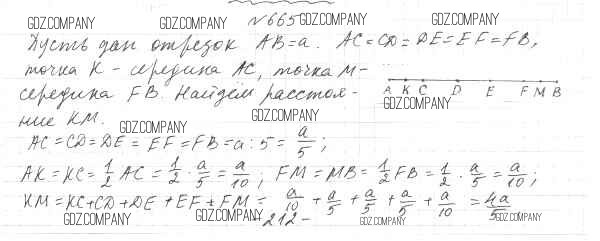 №665
GDZ.COMPANY GDZ.COMPANY GDZ.COMPANY GDZ.COMPANY
Пусть дан отрезок AB=a. AC=CD=DE=EF=FB,
точка K - середина AC, точка M-
середина FB. Найдём расстоя-
ние KM.
A K C D E F M B
GDZ.COMPANY GDZ.COMPANY GDZ.COMPANY
AC=CD=DE=EF=FB=a:5=a/5;
AK=KC=1/2 AC=1/2·a/5=a/10; FM=MB=1/2 FB=1/2·a/5=a/10;
KM=KC+CD+DE+EF+FM=a/10+a/5+a/5+a/5+a/10=4a/5
GDZ.COMPANY GDZ.COMPANY GDZ.COMPANY GDZ.COMPANY
-212-